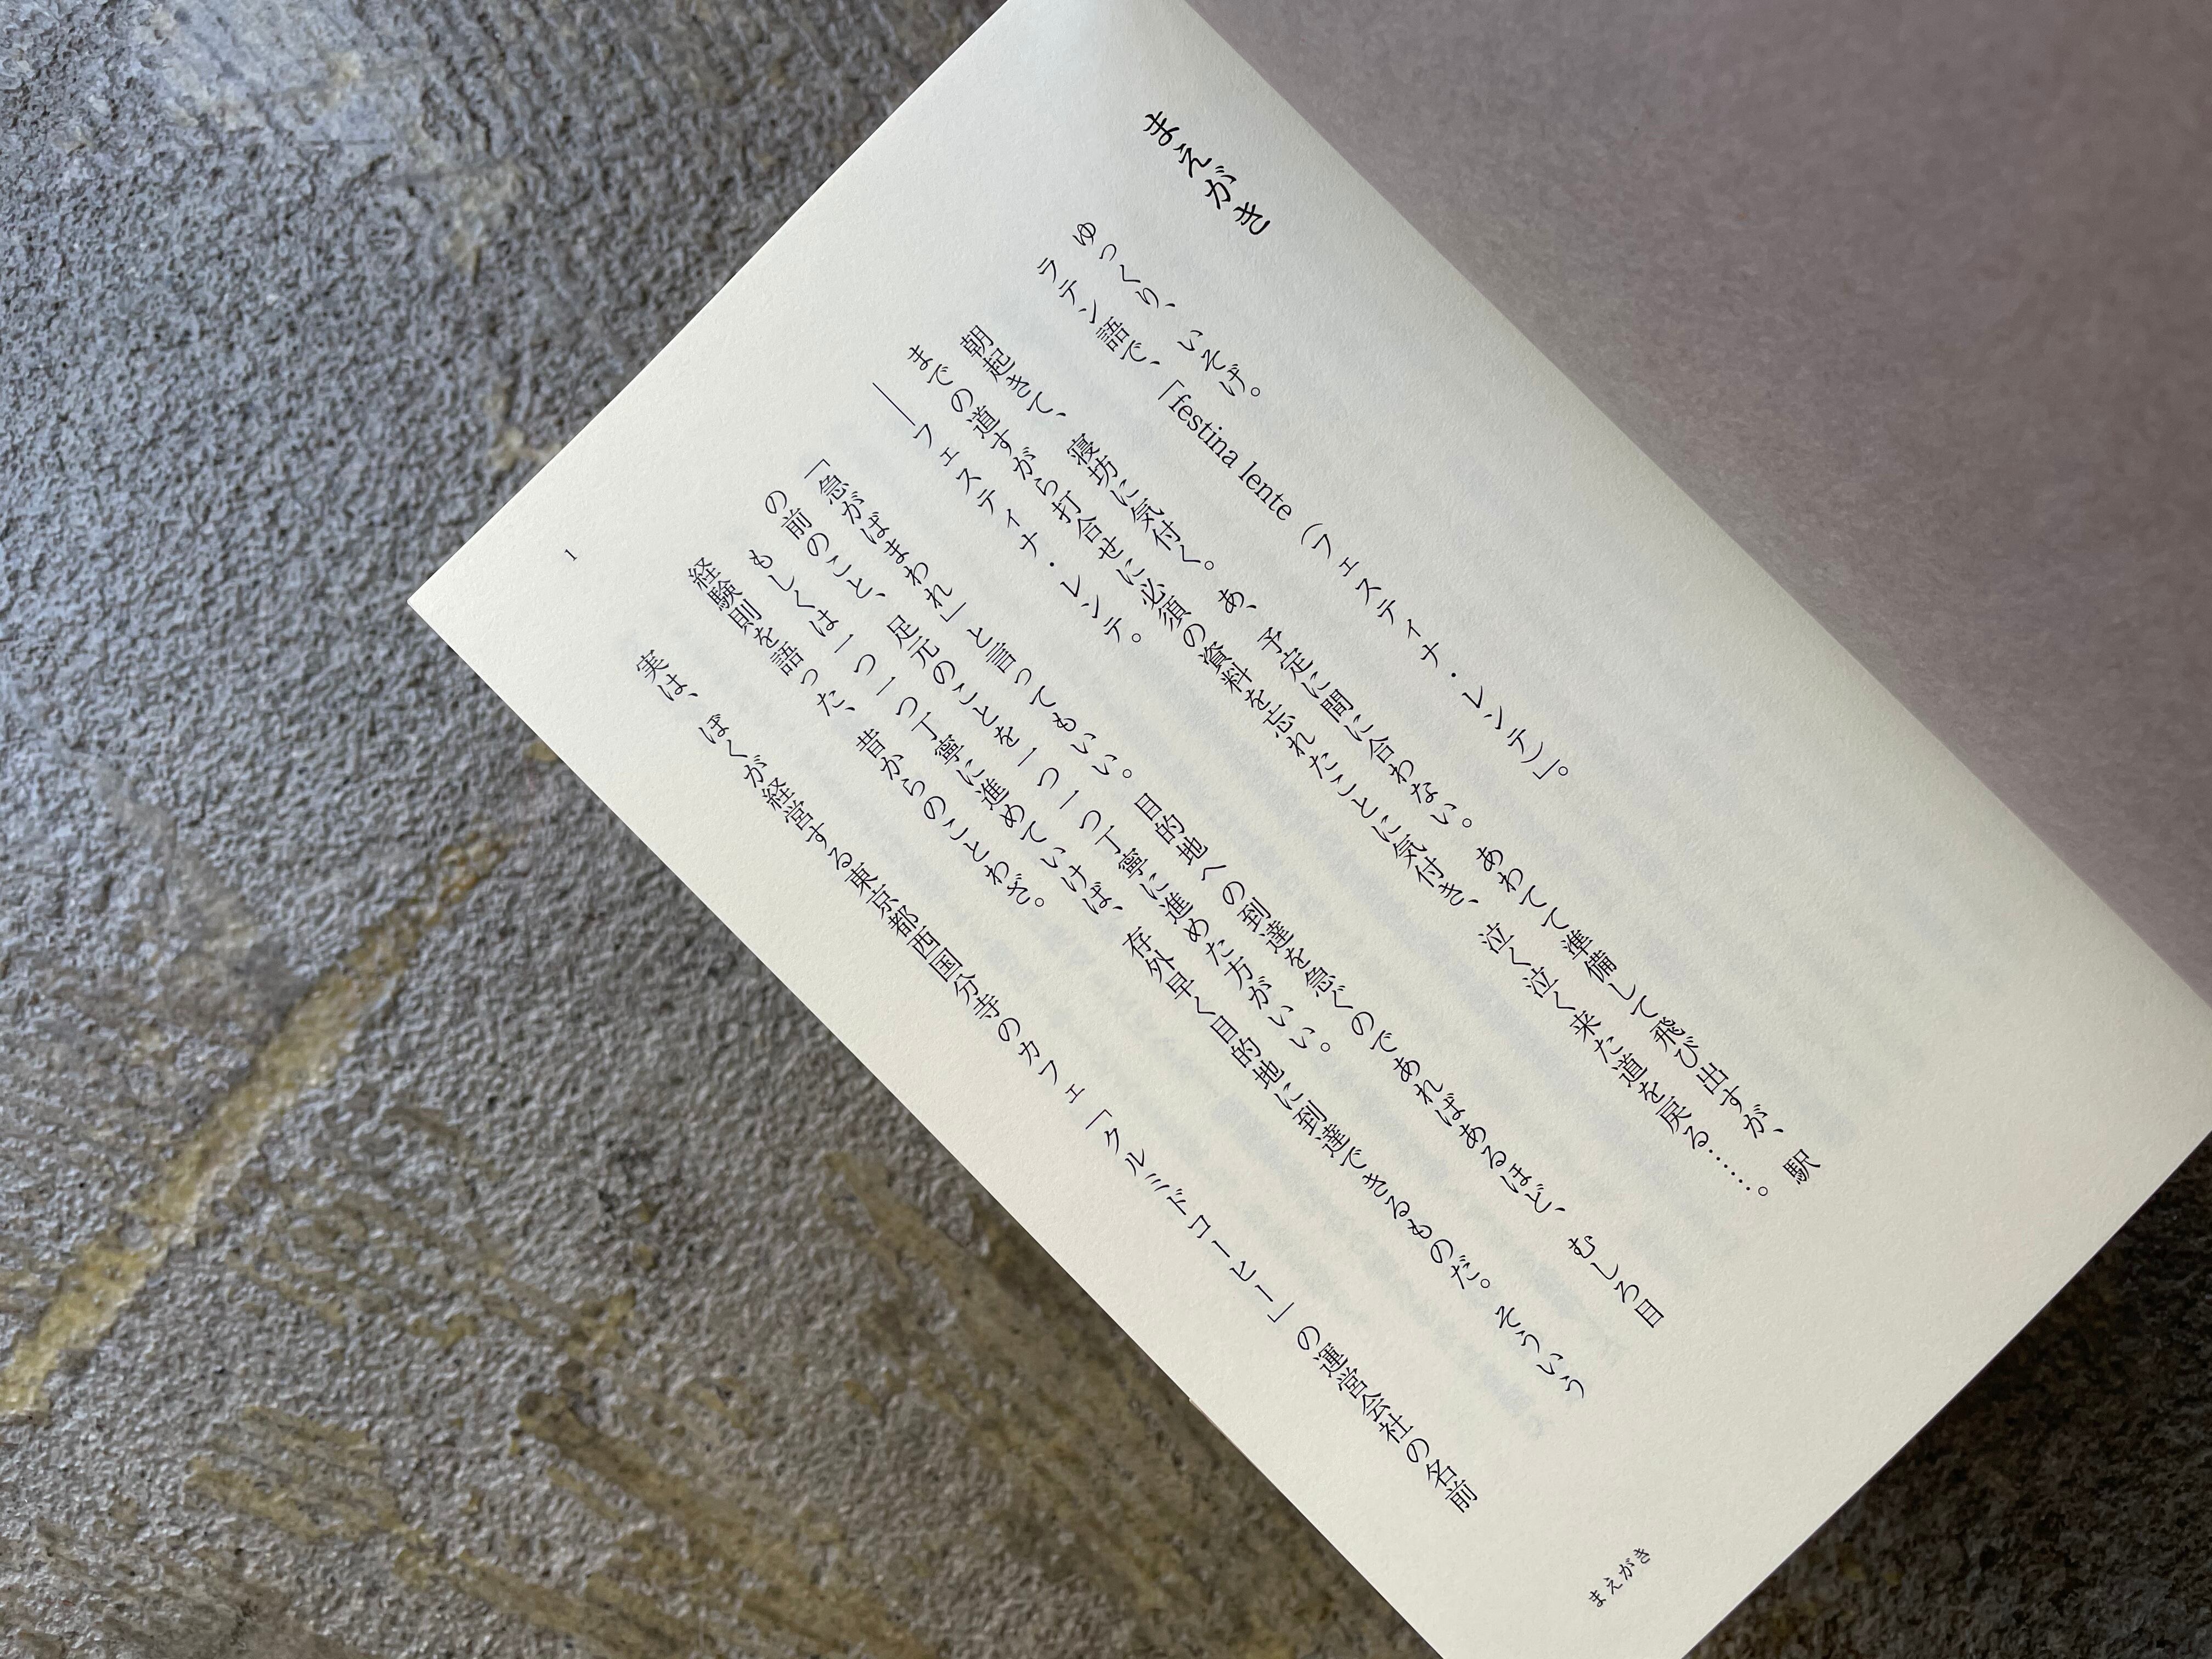 まえがき
ゆっくり、いそげ。
ラテン語で、「festina lente（フェスティナ・レンテ）」。
朝起きて、寝坊に気付く。あ、予定に間に合わない。あわてて準備して飛び出すが、駅
までの道すがら打合せに必須の資料を忘れたことに気付き、泣く泣く来た道を戻る……。
――フェスティナ・レンテ。
「急がばまわれ」と言ってもいい。目的地への到達を急ぐのであればあるほど、むしろ目
の前のこと、足元のことを一つ一つ丁寧に進めた方がいい。
もしくは一つ一つ丁寧に進めていけば、存外早く目的地に到達できるものだ。そういう
経験則を語った、昔からのことわざ。
実は、ぼくが経営する東京都西国分寺のカフェ「クルミドコーヒー」の運営会社の名前
1
まえがき